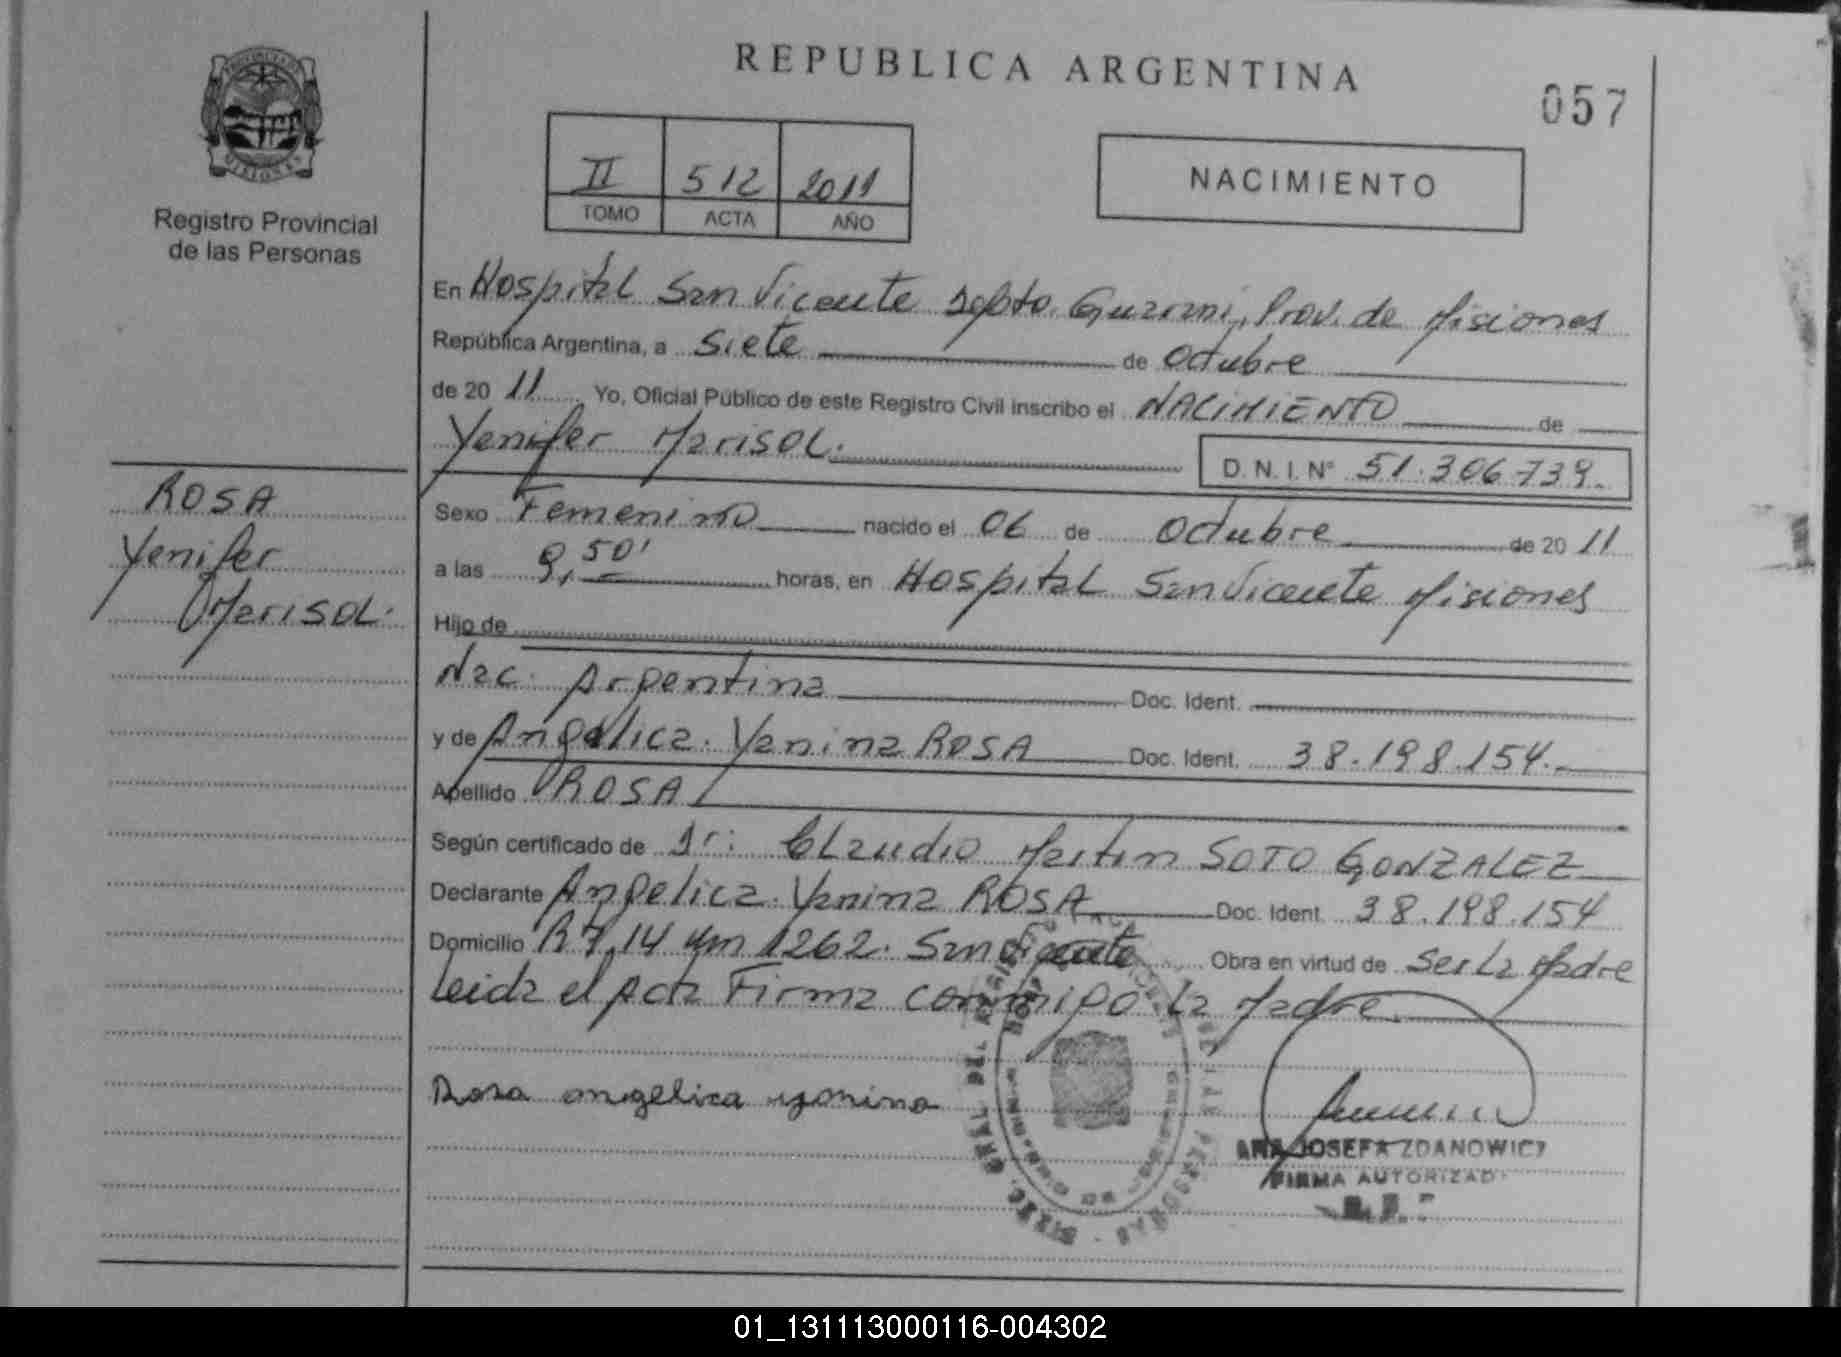 REPUBLICA ARGENTINA
057
PROVINCIA DE
MISIONES
Registro Provincial
de las Personas
II 512 2011
TOMO ACTA AÑO
NACIMIENTO
En Hospital San Vicente Dpto. Guarani, Prov. de Misiones
República Argentina, a Siete de Octubre
de 20 11 Yo, Oficial Público de este Registro Civil inscribo el NACIMIENTO de
Yenifer Marisol.
D.N.I.Nº 51.306.739.
ROSA
Yenifer
Marisol.
Sexo Femenino nacido el 06 de Octubre de 20 11
a las 9,50' horas, en Hospital San Vicente Misiones
Hijo de
Nac. Argentina Doc. Ident.
y de Angelica. Yanina ROSA Doc. Ident. 38.198.154.
Apellido ROSA
Según certificado de Dr: Claudio Martin SOTO GONZALEZ
Declarante Angelica. Yanina ROSA Doc. Ident. 38.198.154
Domicilio R 7, 14 Km 1262. San Vicente Obra en virtud de Ser La Madre
Leida el Acta Firma conmigo La Madre
Rosa angelica yanina
ANA JOSEFA ZDANOWICZ
FIRMA AUTORIZAD
01_131113000116-004302